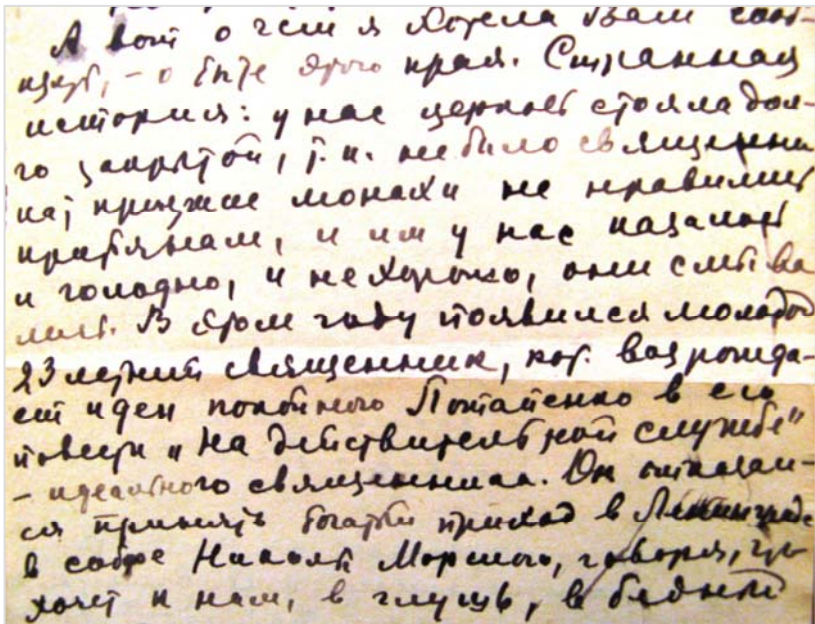 А вот о чем я хотела Вам сооб-
щить, - о быте этого края. Странная
история: у нас церковь стояла дол-
го закрытой, т.к. не было священни
ка; приезжие монахи не нравились
прибямам, и им у нас казалось
и голодно, и не хорошо, они смыва
лись. В этом году появился молодой
23 летний священник, кот. возрожда-
ет идеи покойного Потапенко в его
повести „На действительной службе"
- идеального священника. Он отказал-
ся принять богатый приход в Ленинграде
в соборе Николы Морского, говоря, что
хочет к нам, в глушь, в бедный